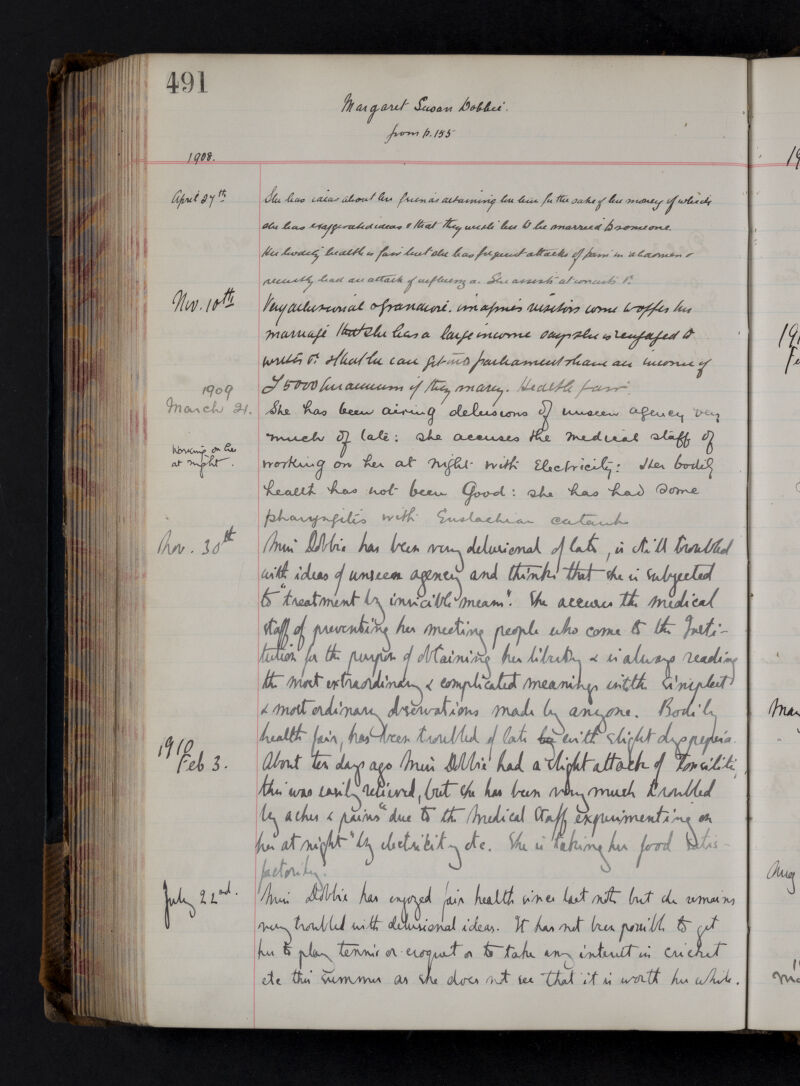 491
Margaret Susan Dobbie.
from p. 155
1908.
April 27th She has ideas about her friends detaining her here for the sake of her money of which
she has exaggerated ideas & that they wish her to be married to someone.
Her bodily health is fair but she has frequent attacks of pain in abdomen &
recently had an attack of influenza. She assists at concerts &c.
Nov. 10th Very delusional & grandiose. imagines visitors come to offer her
marriage that she has a large income says she is engaged to
writes &c. & that he can get into parliament & have an income of
£5000 per annum if they marry. Health fair.
1909
March 21. She has been airing delusions of unseen agency very
much of late: she accuses the medical staff of
Working on her
at night.
working on her at night with Electricity: Her bodily
health has not been Good: she has had some
pharyngitis with Eustachian catarrh
Nov. 30th Miss Dobbie has been very delusional of late, is still troubled
with ideas of unseen agency and thinks that she is subjected
to "treatment by invisible means". She accuses the medical
staff of preventing her meeting people who come to the Insti-
tution for the purpose of obtaining her liberty & is always reading
the most extraordinary & complicated meanings into the simplest
& most ordinary observations made by anyone. Bodily
health fair, has been troubled of late with slight dyspepsia.
1910
Feb 3. About ten days ago Miss Dobbie had a slight attack of Tonsilitis,
this was easily relieved, but she has been very much troubled
by aches & pains "due to the Medical Staff experimenting on
her at night" by electricity etc. She is taking her food satis-
factorily.
July 22nd. Miss Dobbie has enjoyed fair health since last note but she remains
very troubled with delusional ideas. It has not been possible to get
her to play tennis or croquet or to take any interest in cricket
etc this summer as she does not see that it is worth her while.